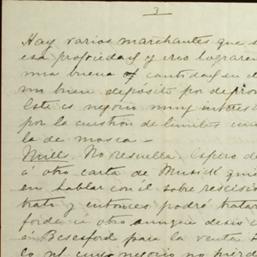 3
Hay varios marchantes que s
esa propiedad y creo lograre
una buena cantidad en d
un buen deposito por de pron
Este es negocio muy interes
por la cuestion de limites
la de mosca -
Mill. No resuelta. Espero d
á otra carta de Musick qui
en hablar con él sobre rescisió
trato y entonces podré tratar
á otro aunque
en Beresford para la venta
negocio no pierd